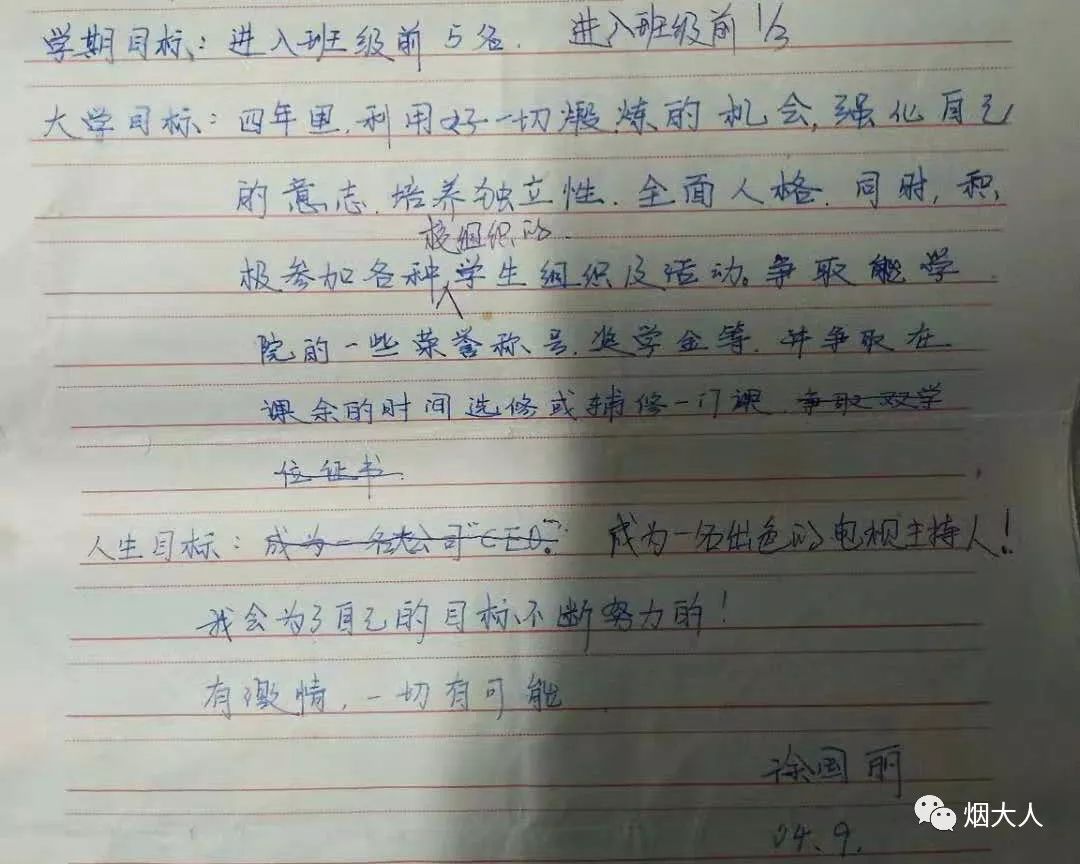 学期目标：进入班级前5名. 进入班级前1/3
大学目标：四年里,利用好一切煅炼的机会,强化自己
的意志,培养独立性.全面人格.同时,积
极组织的
极参加各种学生组织及活动。争取能学
院的一些荣誉称号,奖学金等.并争取在
课余的时间选修或辅修一门课 争取双学
位证书.
人生目标：成为一名大公司"CEO". 成为一名出色的电视主持人！
我会为了自己的目标不断努力的！
有激情,一切有可能
徐国丽
04.9.
烟大人